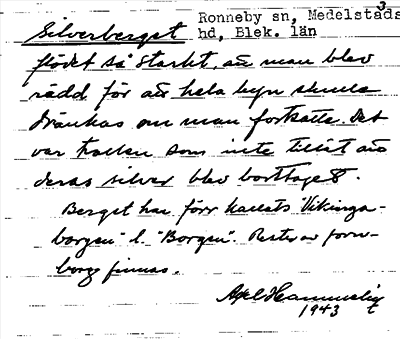 3
Silverberget Ronneby sn, Medelstads
hd, Blek. län
flödet så starkt, att man blev
rädd för att hela byn skulle
dränkas om man fortsatte. Det
var trollen som inte tillät att
deras silver blev borttaget.
Berget har förr kallats "Vikinga-
borgen" l. "Borgen". Rester av forn-
borg finnas.
Axel
1943